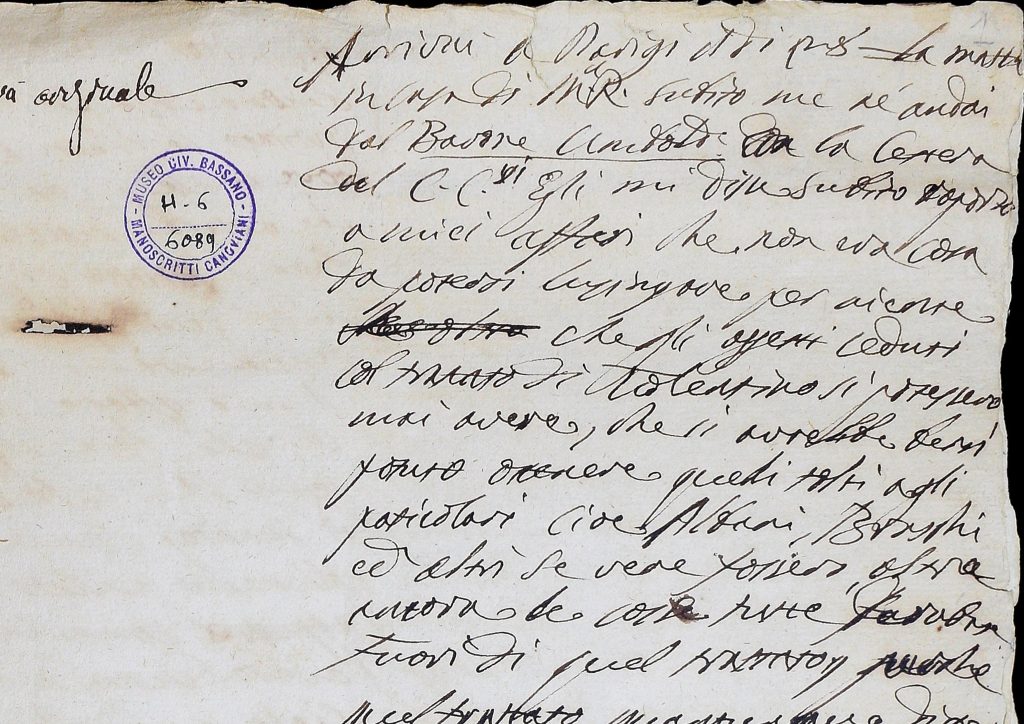 originale
MUSEO CIV. BASSANO
H-6
6089
MANOSCRITTI CANOVIANI
1
Arrivai a Parigi il di la matt
in casa di Mr R. subito me ne andai
dal Barone la lettera
del C. C. Egli mi disse subito
a miei affari che non era cosa
da potersi lusingare per ricevere
che gli oggetti ceduti
col trattato di Tolentino si potessero
mai avere, che si avrebbe bensì
potuto ottenere quelli tolti agli
particolari cioè Albani, Braschi
ed altri se vene fossero, oltre
ancora le cose tutte
fuori di quel
nel trattato